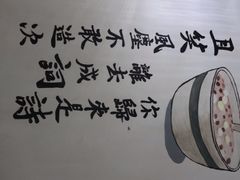 你歸來是詩
離去成詞
且笑風塵不敢造次